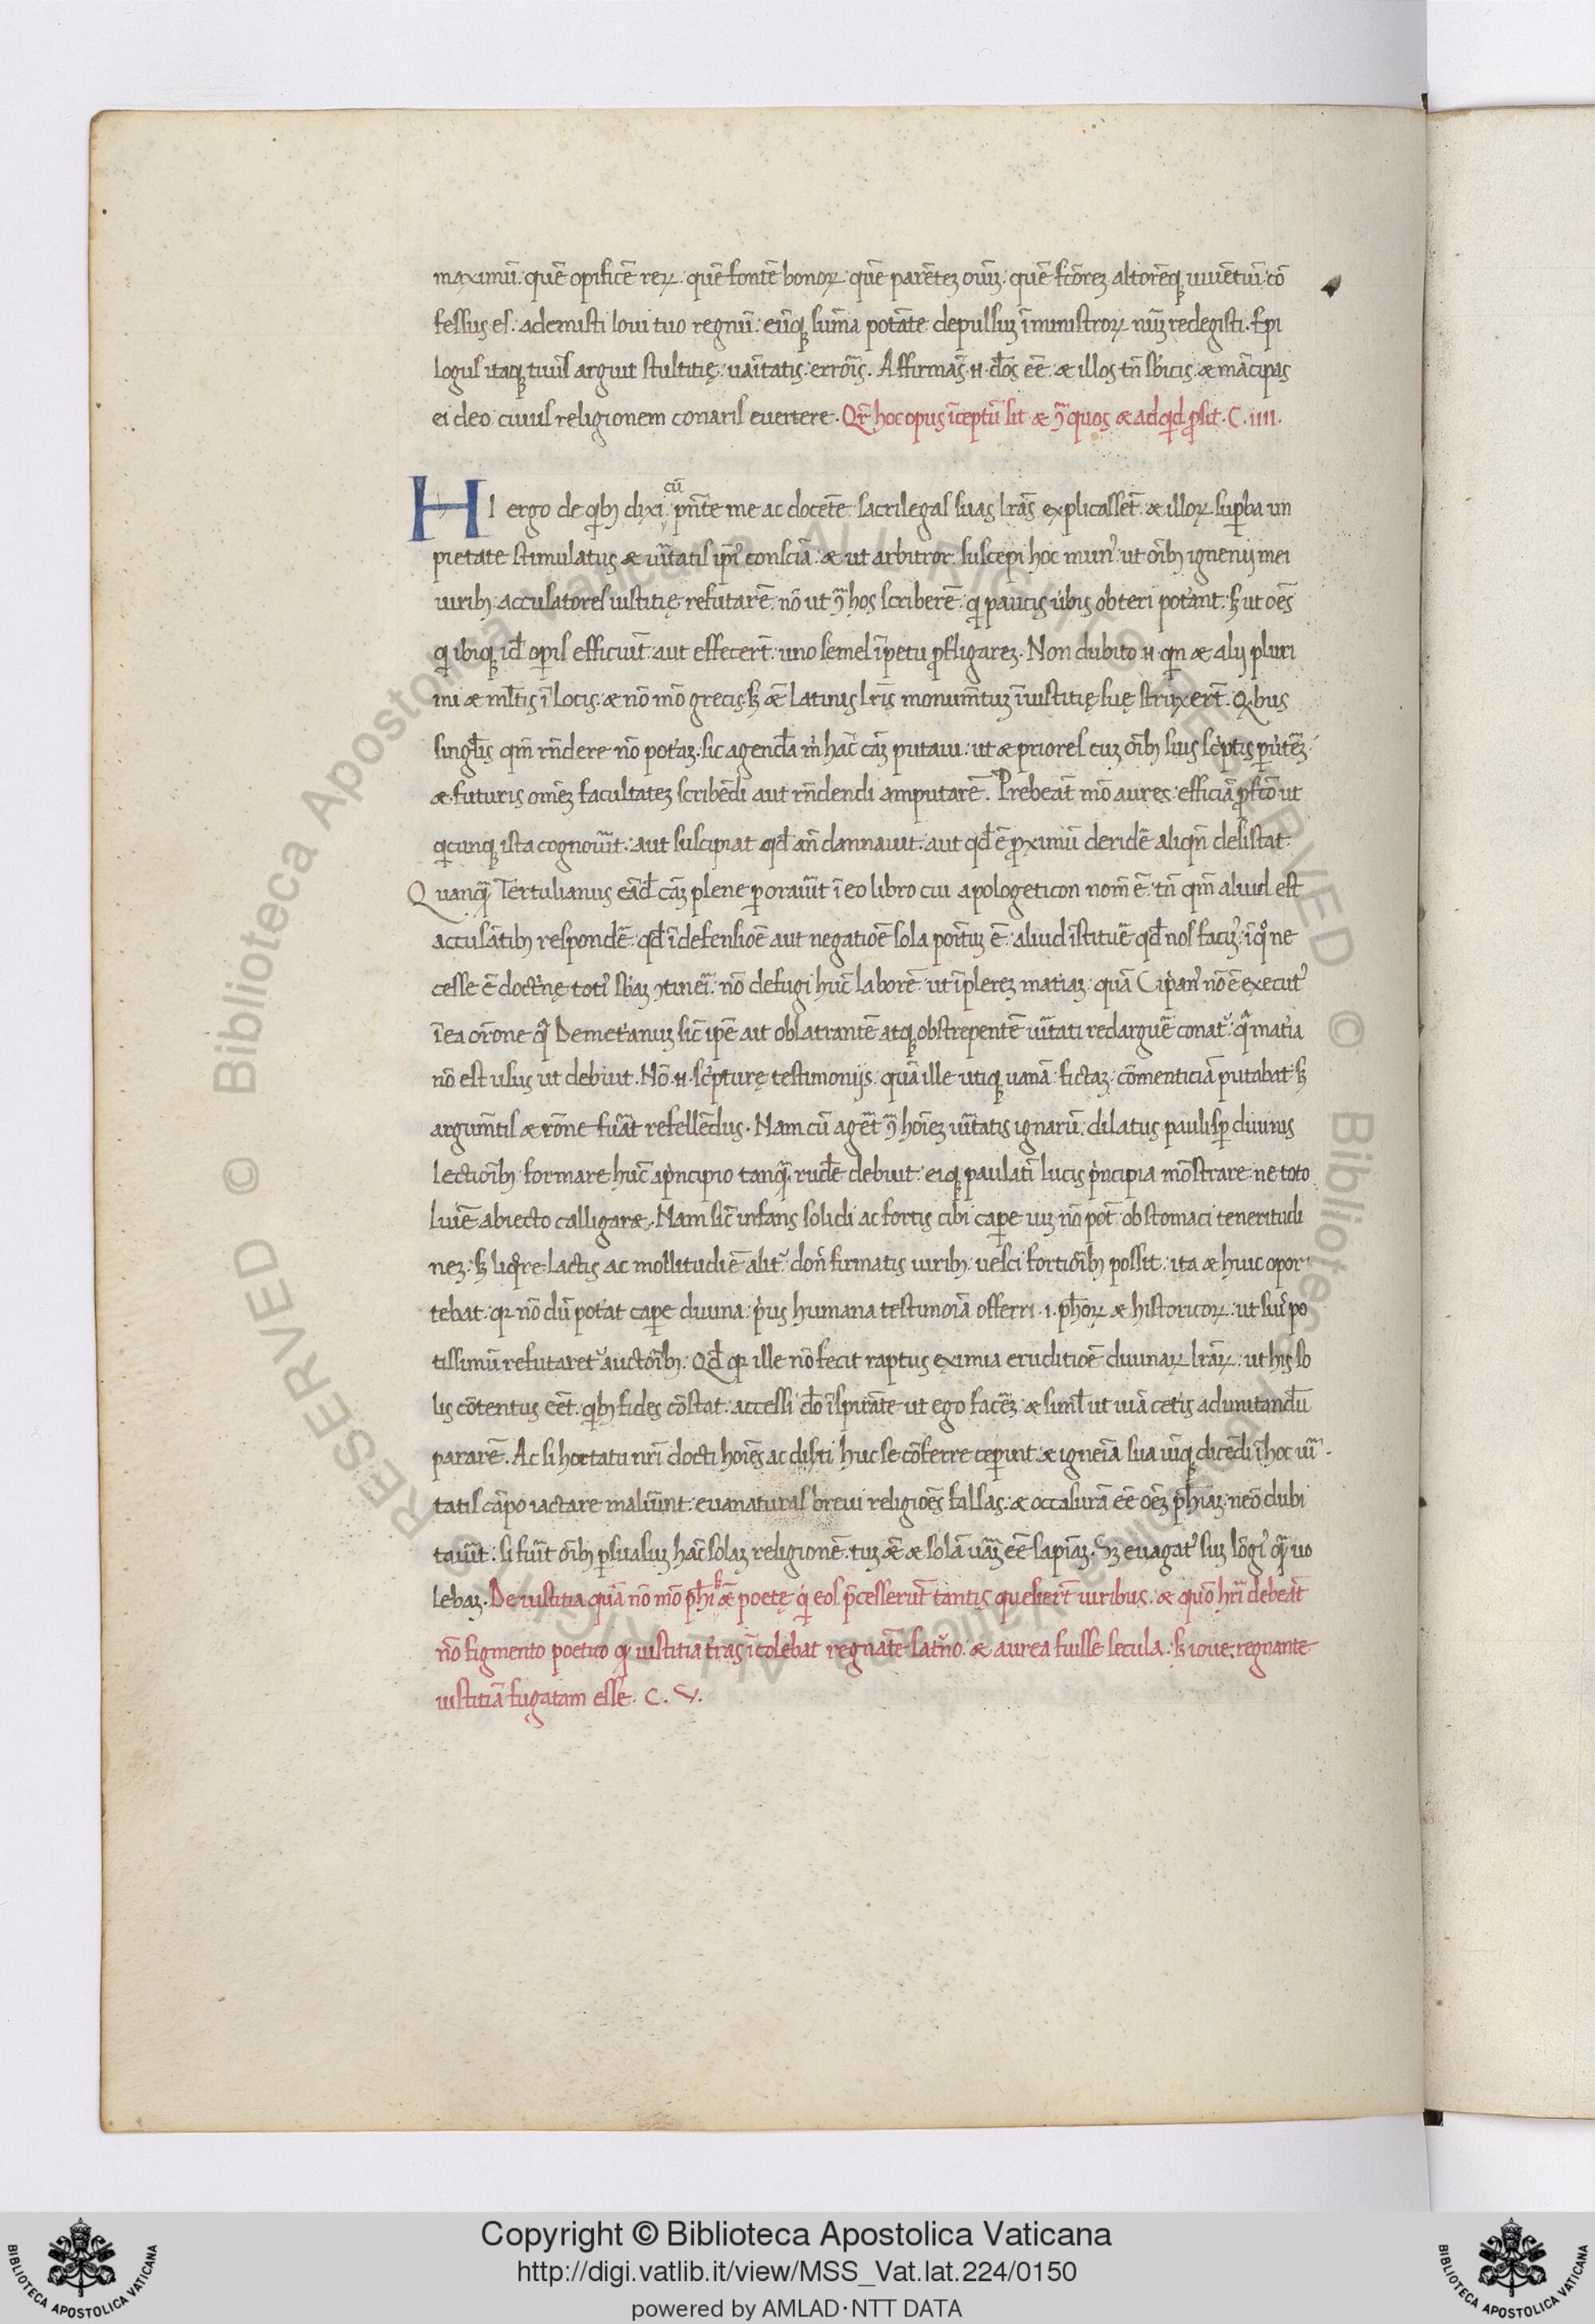 maximū. quē opificē reꝝ. quē fontē bonoꝝ. quē parēteꝫ oīuꝫ. quē fctōreꝫ altorēqꝫ uiuētiū cō
fessus es. ademisti Ioui tuo regnū. eūqꝫ sūma potāte depulsuꝫ ī ministroꝝ nūꝫ redegisti. Epi
logus itaqꝫ tuus arguit stultitię. uāitatis. errōis. Affirmas .n. dōs eē. & illos tn̄ sbicis & mācipas
ei deo. cuius religionem conaris euertere. Qr̄ hoc opus īceptū sit & ꝯ quos & ad qd ꝓsit. C. IIII.
HI ergo de qibꝫ dixi cū pn̄te me ac docēte sacrilegas suas lr̄as explicassēt. & illoꝝ supba im
pietate stimulatus & uītatis ip̄i conscīa. & ut arbitror. suscepi hoc mun᾽ ut oībꝫ igenij mei
uiribꝫ accusatores iustitię refutarē. nō ut ꝯ hos scriberē. qi paucis ūbis obteri potant. sꝫ ut oēs
qi ubiqꝫ id opis efficiūt. aut effecerūt. uno semel īpetu ꝓfligareꝫ. Non dubito .n. qn & alij pluri
mi & mltis ī locis. & nō mō grecis. sꝫ &ē latinis lr̄is monumtuꝫ iniustitię suę struxert̄. Qibus
singlis qm̄ rn̄dere nō potaꝫ. sic agendā m̄ hāc cāꝫ putaui. ut & priores cuꝫ oībꝫ suis scptis pūteꝫ.
& futuris omēꝫ facultateꝫ scribēdi aut rn̄dendi amputarē. Prebeāt mō aures. efficiā ꝓfcō ut
qicunqꝫ ista cognouīt. aut suscipiat qd an̄ damnauit. aut qd ē ꝓximū deridē aliqn desistat.
Quanqꝫ Tertulianus eādē cāꝫ plene ꝑorauīt ī eo libro cui apologeticon nom̄ ē. tn̄ qm̄ aliud est
accusātibꝫ respondē. qd ī defensiōe aut negatiōe sola positꝫ ē. aliud īstituē qd nos facim᾽. ī qo ne
cesse ē doctnę toti᾽ sbaꝫ ꝯtinei. nō defugi hūc laborē. ut īplereꝫ matiaꝫ. quā Cipan᾽ nō ē executˀ
ī ea orōne qa Demetanuꝫ sic ipe ait oblatrantē atqꝫ obstrepentē uītati redarguē conat. qa matia
nō est usus ut debuit. Nō .n. scpturę testimonijs. quā ille utiqꝫ uanā fictaꝫ cōmenticiā putabat. sꝫ
argumtis & rōne fuat refellēdus. Nam cū agēt ꝯ hoīeꝫ uītatis ignarū. dilatus paulisp diuinis
lectiōibꝫ formare hūc a pncipio tanqꝫ rudē debuit. eiqꝫ paulatī lucis pncipia mōstrare ne toto
lumīe abiecto calligaræ. Nam sic infans solidi ac fortis cibi cape uiꝫ nō pot̄. ob stomaci teneritudi
neꝫ. sꝫ liqore lactis ac mollitudiē alit. don̄ firmatis uiribꝫ. uesci fortiōibꝫ possit. ita & huic opor
tebat. qr nō dū potat cape diuina. pus humana testimoīa offerri .i. phoꝝ & historicoꝝ. ut suis po
tissimū refutaret auctōibꝫ. Qd qr ille nō fecit raptus eximia eruditiōe diuinaꝝ lr̄aꝝ. ut his so
lis cōtentus eēt. qibꝫ fides cōstat. accessi dō īspirāte ut ego faceꝫ & siml ut uiā cetis ad imitandū
pararē. Ac si hortatu nr̄i docti hoīes ac diserti huc se cōferre ceperint & igēia sua uīqꝫ dicēdi ī hoc uī
tatis cāpo iactare maluīnt. euanaturas breui religiōes falsas. & occasurā eē oēꝫ phiaꝫ. nēo dubi
tauīt. si fuīt oībꝫ psuasuꝫ hāc solaꝫ religionē. tuꝫ &ē & solā uāꝫ eē sapiāꝫ. Sꝫ euagat᾽ suꝫ lōgi᾽ qꝫ uo
lebaꝫ. De iustitia quā nō mō phi sꝫ &ē poetę qi eos pcesserūt tantis quesiert̄ uiribus. & quō hr̄i debeāt
nō figmento poetico qr iustitia tras īcolebat regnāte satno. & aurea fuisse secula. sꝫ ioue regnante
iustitiā fugatam esse. C. V.
Copyright © Biblioteca Apostolica Vaticana
http://digi.vatlib.it/view/MSS_Vat.lat.224/0150
powered by AMLAD·NTT DATA
BIBLIOTECA APOSTOLICA VATICANA
BIBLIOTECA APOSTOLICA VATICANA